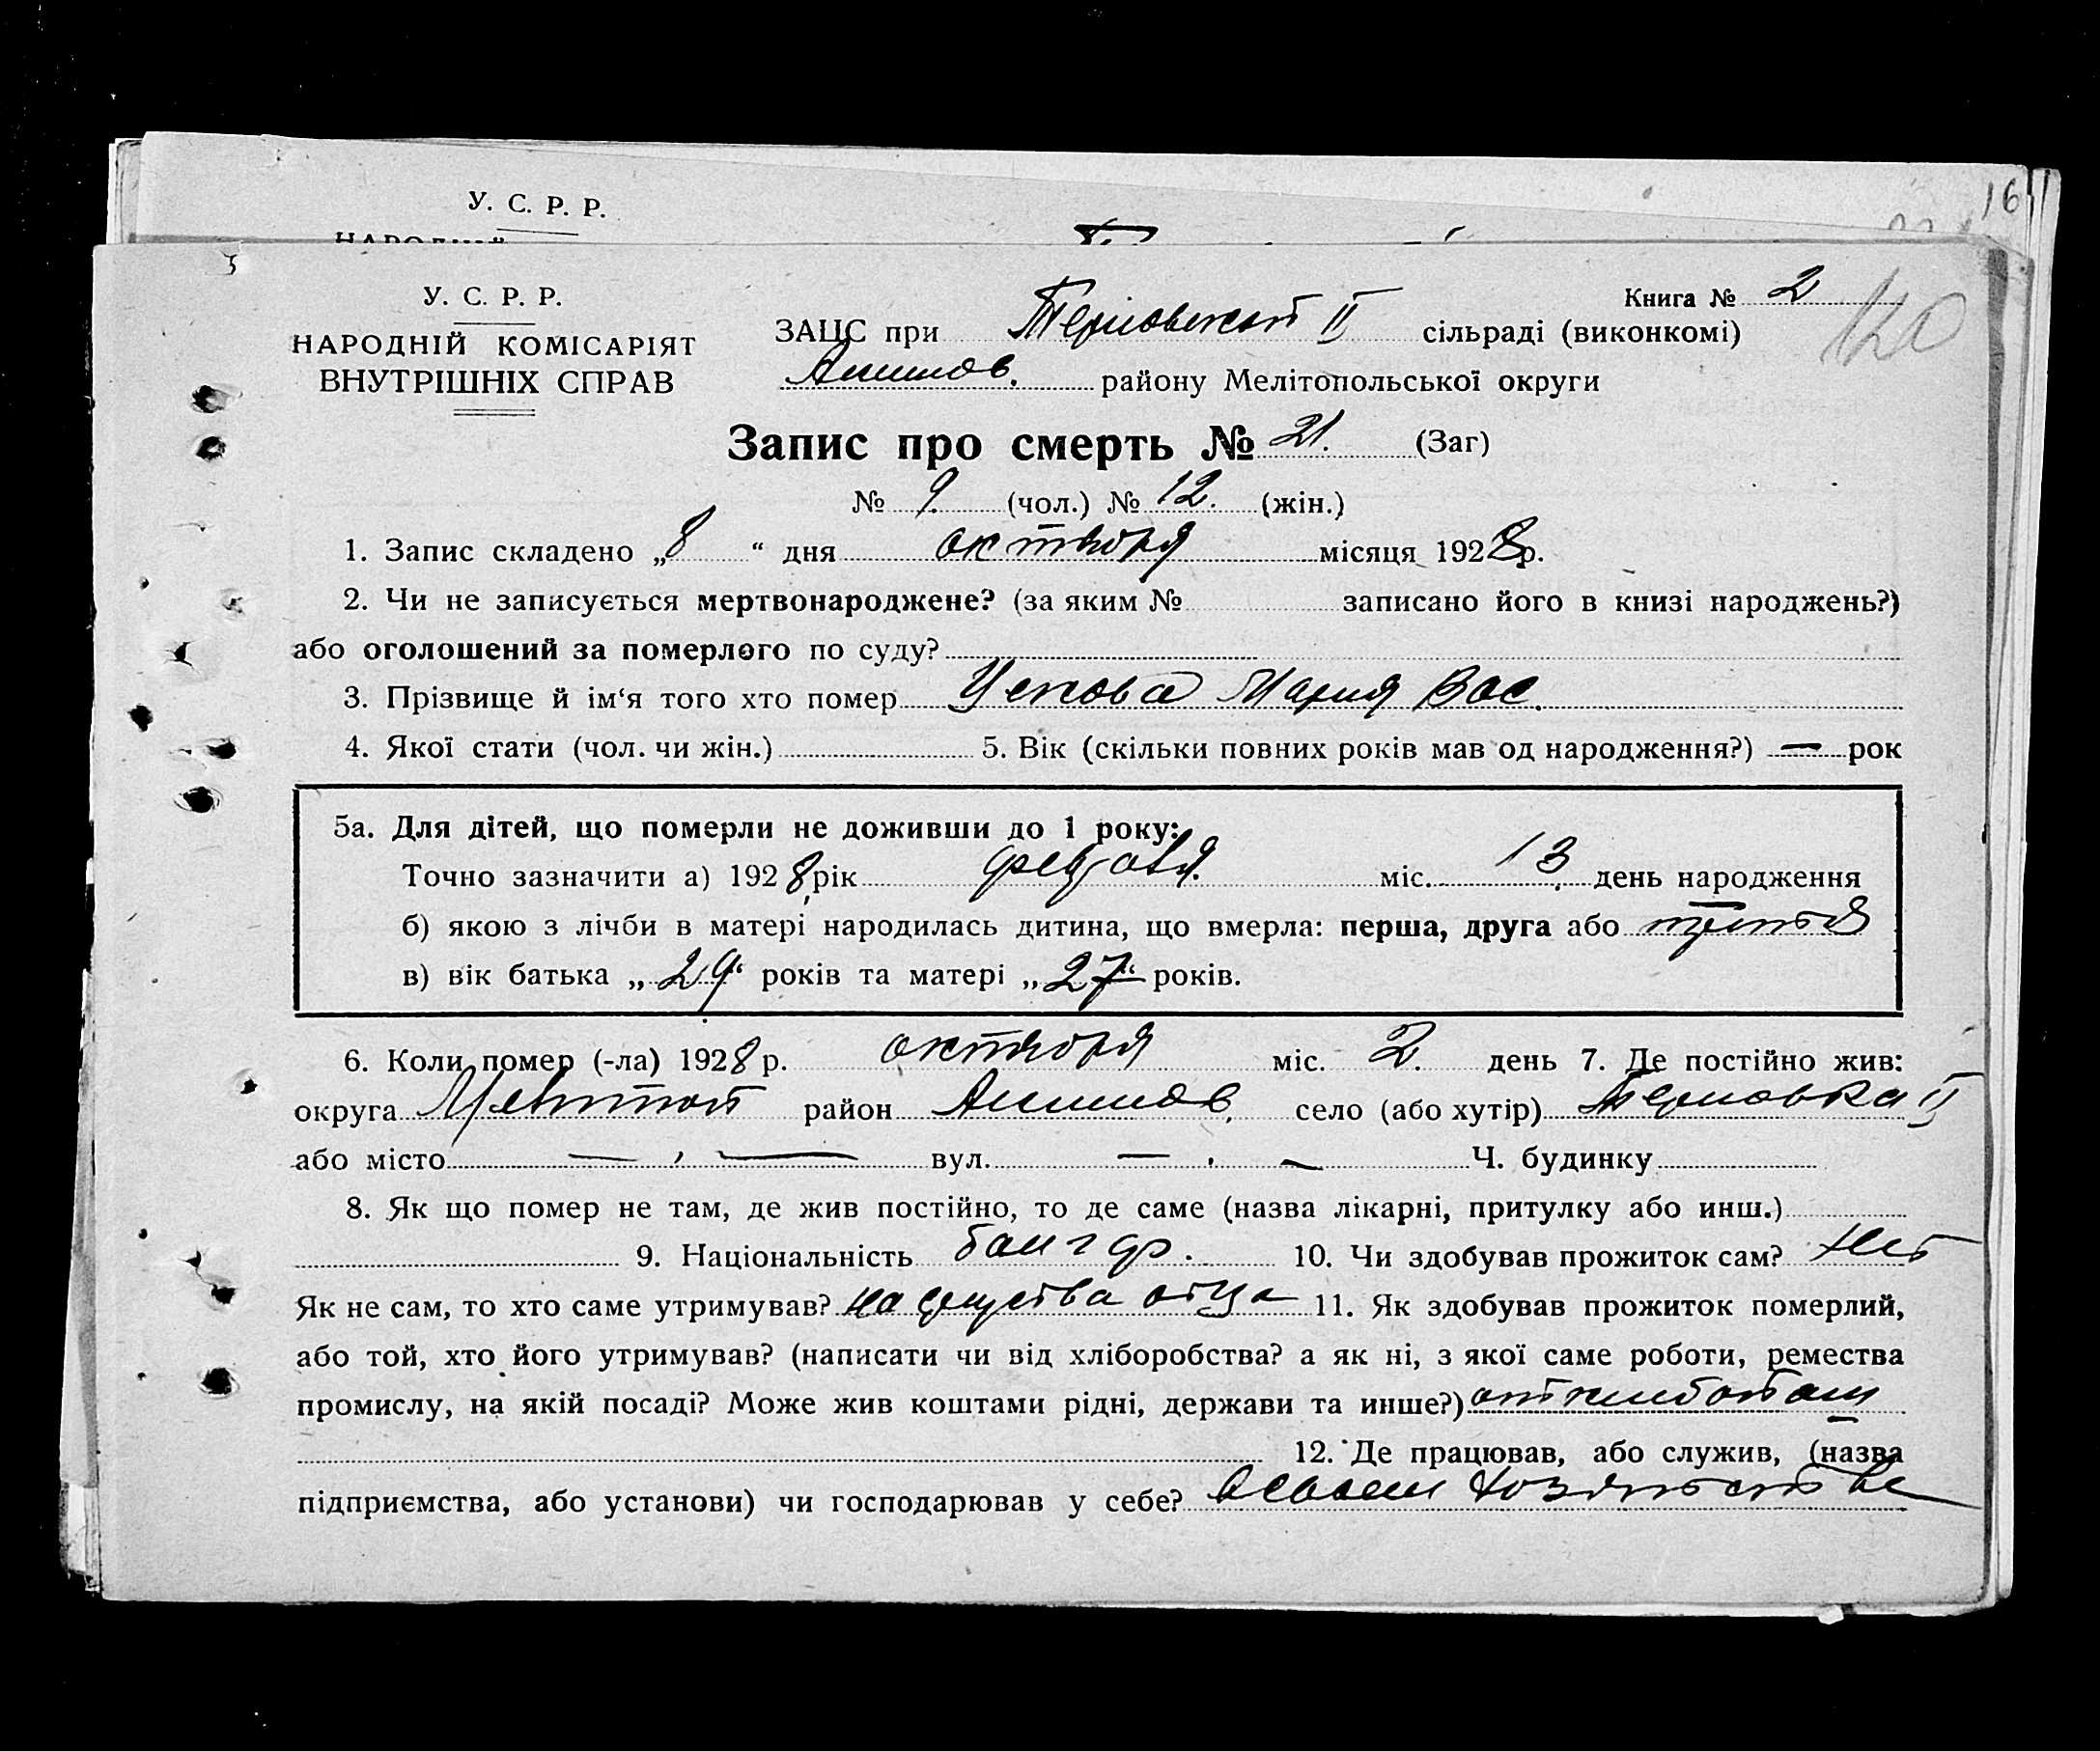 16
У. С. Р. Р.
У. С. Р. Р.
НАРОДНІЙ КОМІСАРІЯТ
ВНУТРІШНІХ СПРАВ
Книга № 2
120
ЗАЦС при Терновской II сільраді (виконкомі)
Акимов. району Мелітопольської округи
Запис про смерть № 21. (Заг)
№ 9. (чол.) № 12. (жін.)
1. Запис складено „8“ дня октября місяця 1928р.
2. Чи не записується мертвонароджене? (за яким № записано його в книзі народжень?)
або оголошений за померлого по суду?
3. Прізвище й ім‘я того хто помер Ускова Мария Вас.
4. Якої стати (чол. чи жін.) 5. Вік (скільки повних років мав од народження?) — рок
5а. Для дітей, що померли не доживши до 1 року:
Точно зазначити а) 1928 рік февраля міс. 13 день народження
б) якою з лічби в матері народилась дитина, що вмерла: перша, друга або третья
в) вік батька „29“ років та матері „27“ років.
6. Коли помер (-ла) 1928 р. октября міс. 2. день 7. Де постійно жив:
округа Мелитоп район Акимов. село (або хутір) Терновка II
або місто — , — вул. — . — Ч. будинку
8. Як що помер не там, де жив постійно, то де саме (назва лікарні, притулку або инш.)
9. Національність 10. Чи здобував прожиток сам? нет
Як не сам, то хто саме утримував? на средства отца 11. Як здобував прожиток померлий,
або той, хто його утримував? (написати чи від хліборобства? а як ні, з якої саме роботи, ремества
промислу, на якій посаді? Може жив коштами рідні, держави та инше?)
12. Де працював, або служив, (назва
підприємства, або установи) чи господарював у себе? в своем хозяйстве